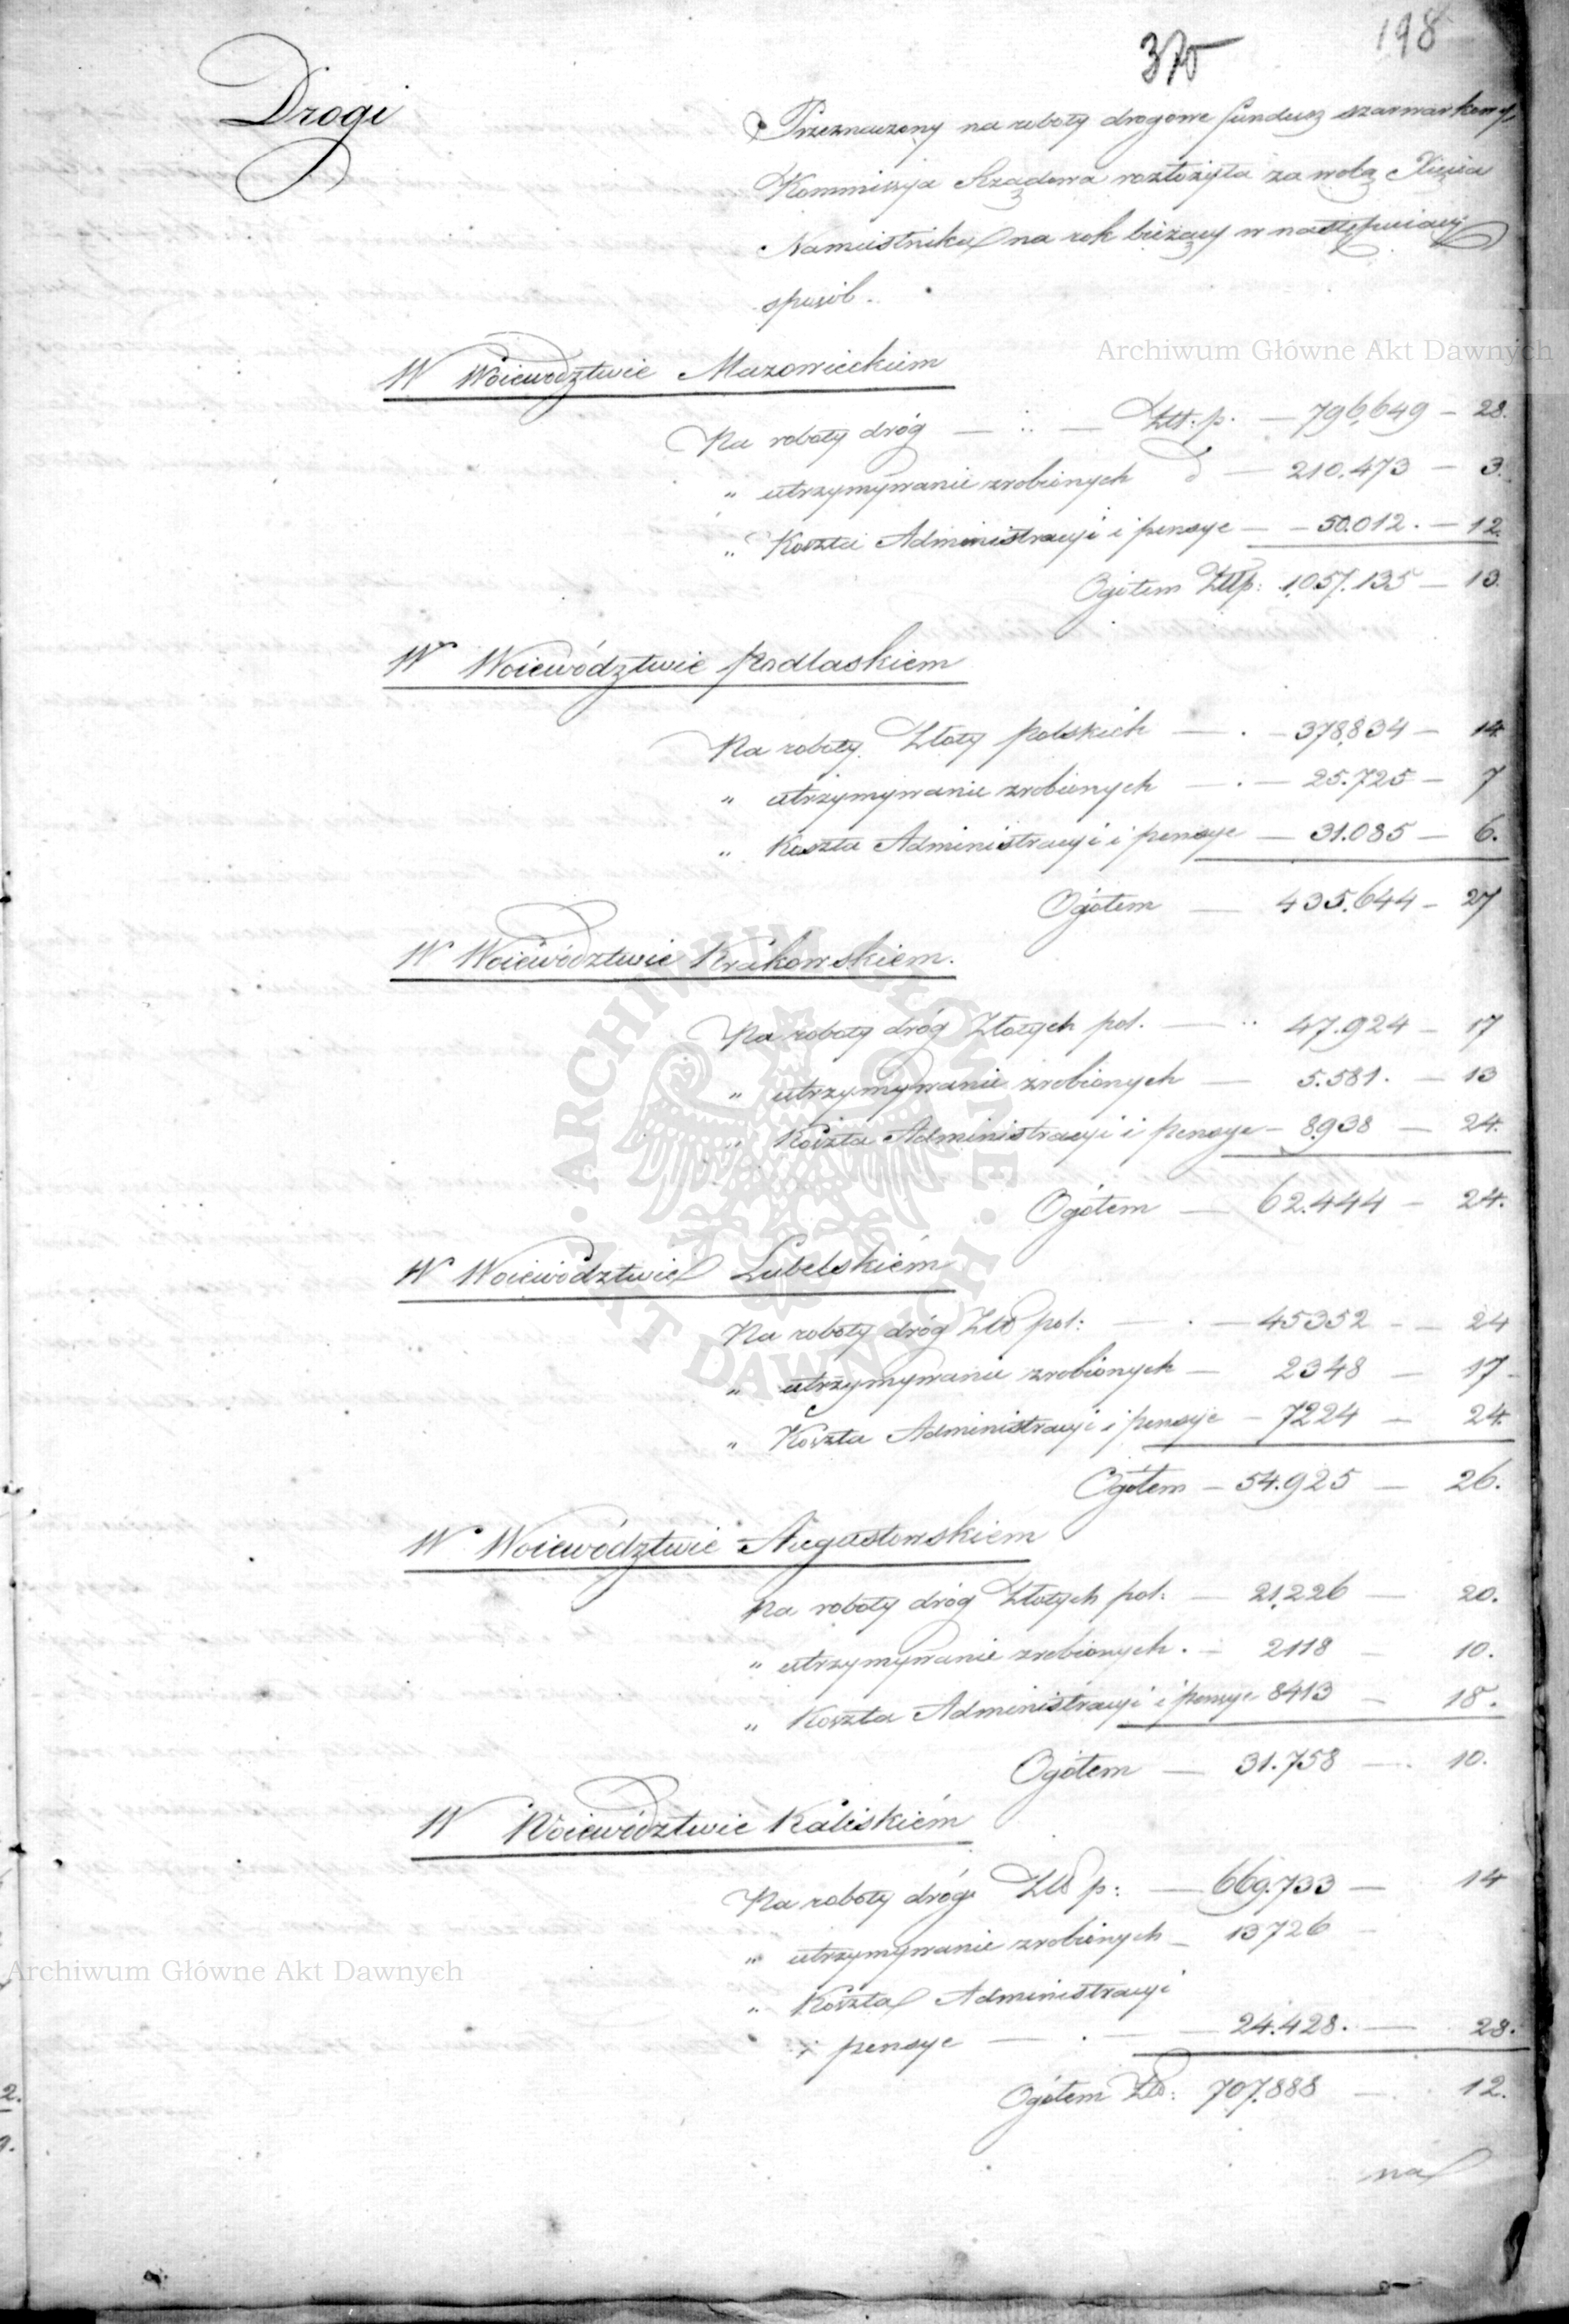 370
198
Drogi
Przeznaczony na roboty drogowe fundusz szarwarkowy
Kommissya Rządowa rozłożyła za wolą Xięcia
Namiestnika na rok bieżący w następuiący
sposób.
Archiwum Główne Akt Dawnych
W Woiewództwie Mazowieckiem
Na roboty dróg — Złt. p. — 796,649 — 28.
„ utrzymywanie zrobionych d — 210.473 — 3.
„ Koszta Administracyi i pensye — 50.012. — 12.
Ogółem Złtp: 1,057.135 — 13.
W Woiewództwie Podlaskiem
Na roboty Złoty Polskich — 378,834 — 14.
„ utrzymywanie zrobionych — 25.725 — 7
„ Koszta Administracyi i pensye — 31.085 — 6.
Ogółem — 435.644 — 27
W Woiewództwie Krakowskiem.
Na roboty dróg Złotych pol. — 47.924 — 17
„ utrzymywanie zrobionych — 5.581. — 13
„ Koszta Administracyi i pensye — 8.938 — 24.
Ogółem — 62.444 — 24.
W Woiewództwie Lubelskiém
Na roboty dróg Złł pol: — 45352 — 24
„ utrzymywanie zrobionych — 2348 — 17
„ Koszta Administracyi i pensye — 7224 — 24.
Ogółem — 54.925 — 26.
W Woiewództwie Augustowskiem
Na roboty dróg Złotych pol: — 21,226 — 20.
„ utrzymywanie zrobionych. — 2118 — 10.
„ Koszta Administracyi i pensye 8413 — 18.
Ogółem — 31.758 — 10.
W Woiewództwie Kaliskiém
Na roboty dróg Złł p: — 669.733 — 14
„ utrzymywanie zrobionych — 13726 —
„ Koszta Administracyi
i pensye — 24.428. — 28.
Ogółem Zło: 707.888 — 12.
na
Archiwum Główne Akt Dawnych
ARCHIWUM GŁÓWNE AKT DAWNYCH